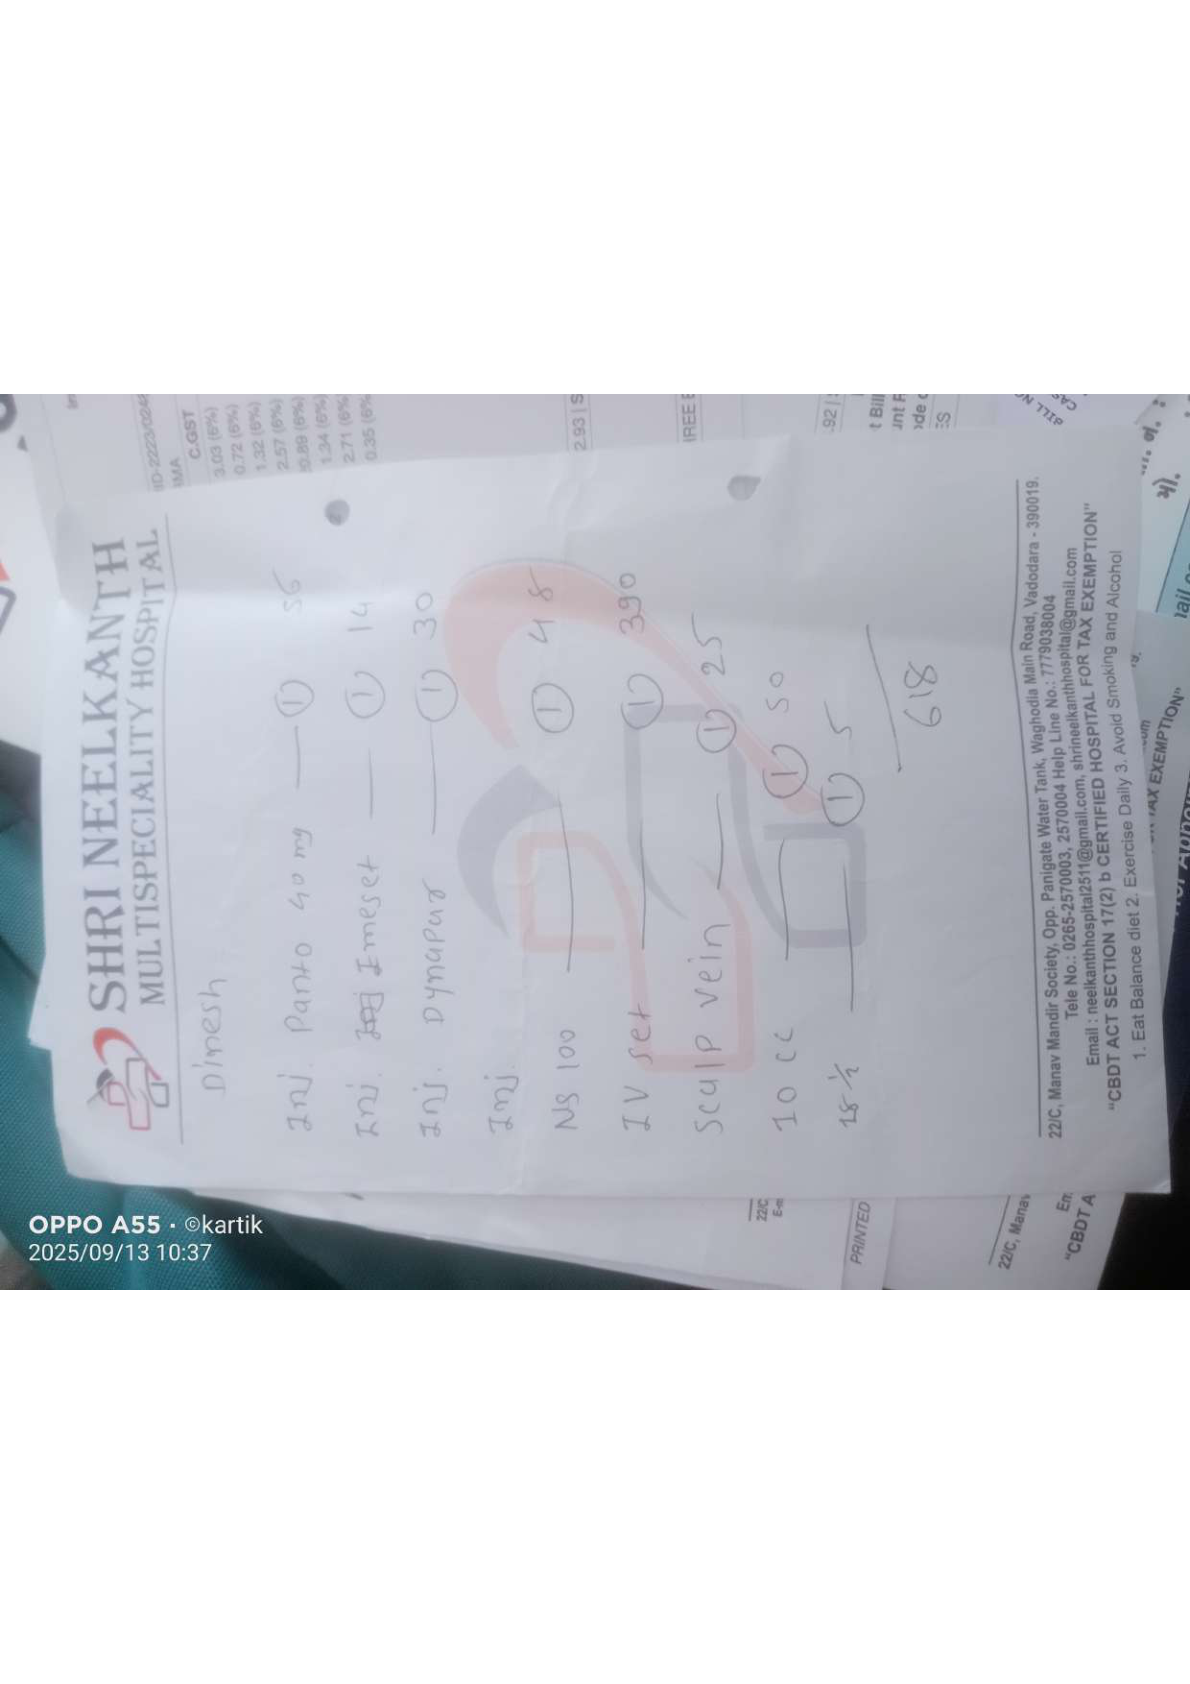 SHRI NEELKANTH
MULTISPECIALITY HOSPITAL
Dinesh
Inj. Panto 40 mg — ① 56
Inj. Imeset — ① 14
Inj. Dynapar — ① 30
Inj.
NS 100 — ① 48
IV set — ① 390
Scalp vein — ① 25
10 CC — ① 50
18 1/2 — ① 5
618
22/C, Manav Mandir Society, Opp. Panigate Water Tank, Waghodia Main Road, Vadodara - 390019.
Tele No.: 0265-2570003, 2570004 Help Line No.: 7779038004
Email : neelkanthhospital2511@gmail.com, shrineelkanthhospital@gmail.com
"CBDT ACT SECTION 17(2) b CERTIFIED HOSPITAL FOR TAX EXEMPTION"
1. Eat Balance diet 2. Exercise Daily 3. Avoid Smoking and Alcohol
ID-2223/024
C.GST
3.03 (6%)
0.72 (6%)
1.32 (6%)
2.57 (6%)
0.89 (6%)
1.34 (6%)
2.71 (6%
0.35 (6%
2.93 | S
REE
.92 |
t Bill
BILL NO
CAS
22/C
PRINTED
22/C, Manav
Em
"CBDT A
TAX EXEMPTION"
મો.
OPPO A55 · ©kartik
2025/09/13 10:37